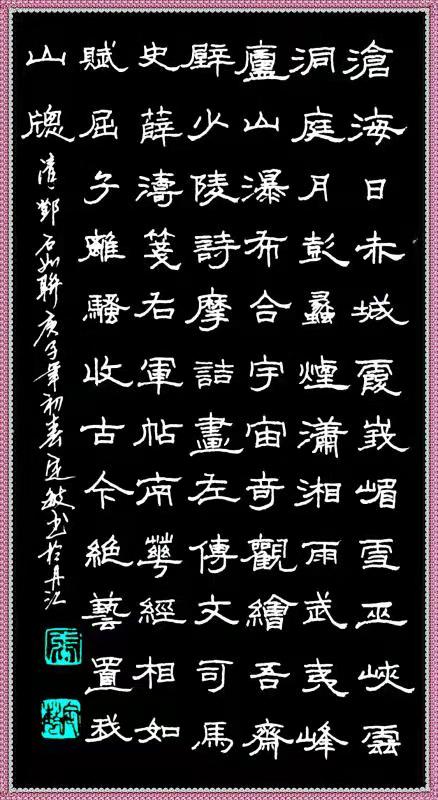 滄海日赤城霞峩嵋雪巫峽雲
洞庭月彭蠡煙瀟湘雨武夷峰
廬山瀑布合宇宙奇觀繪吾齋
壁少陵詩摩詰畫左傳文司馬
史薛濤箋右軍帖南華經相如
賦屈子離騷收古今絶藝置我
山牕
清鄧石如聯庚子年初春定敏书於丹江